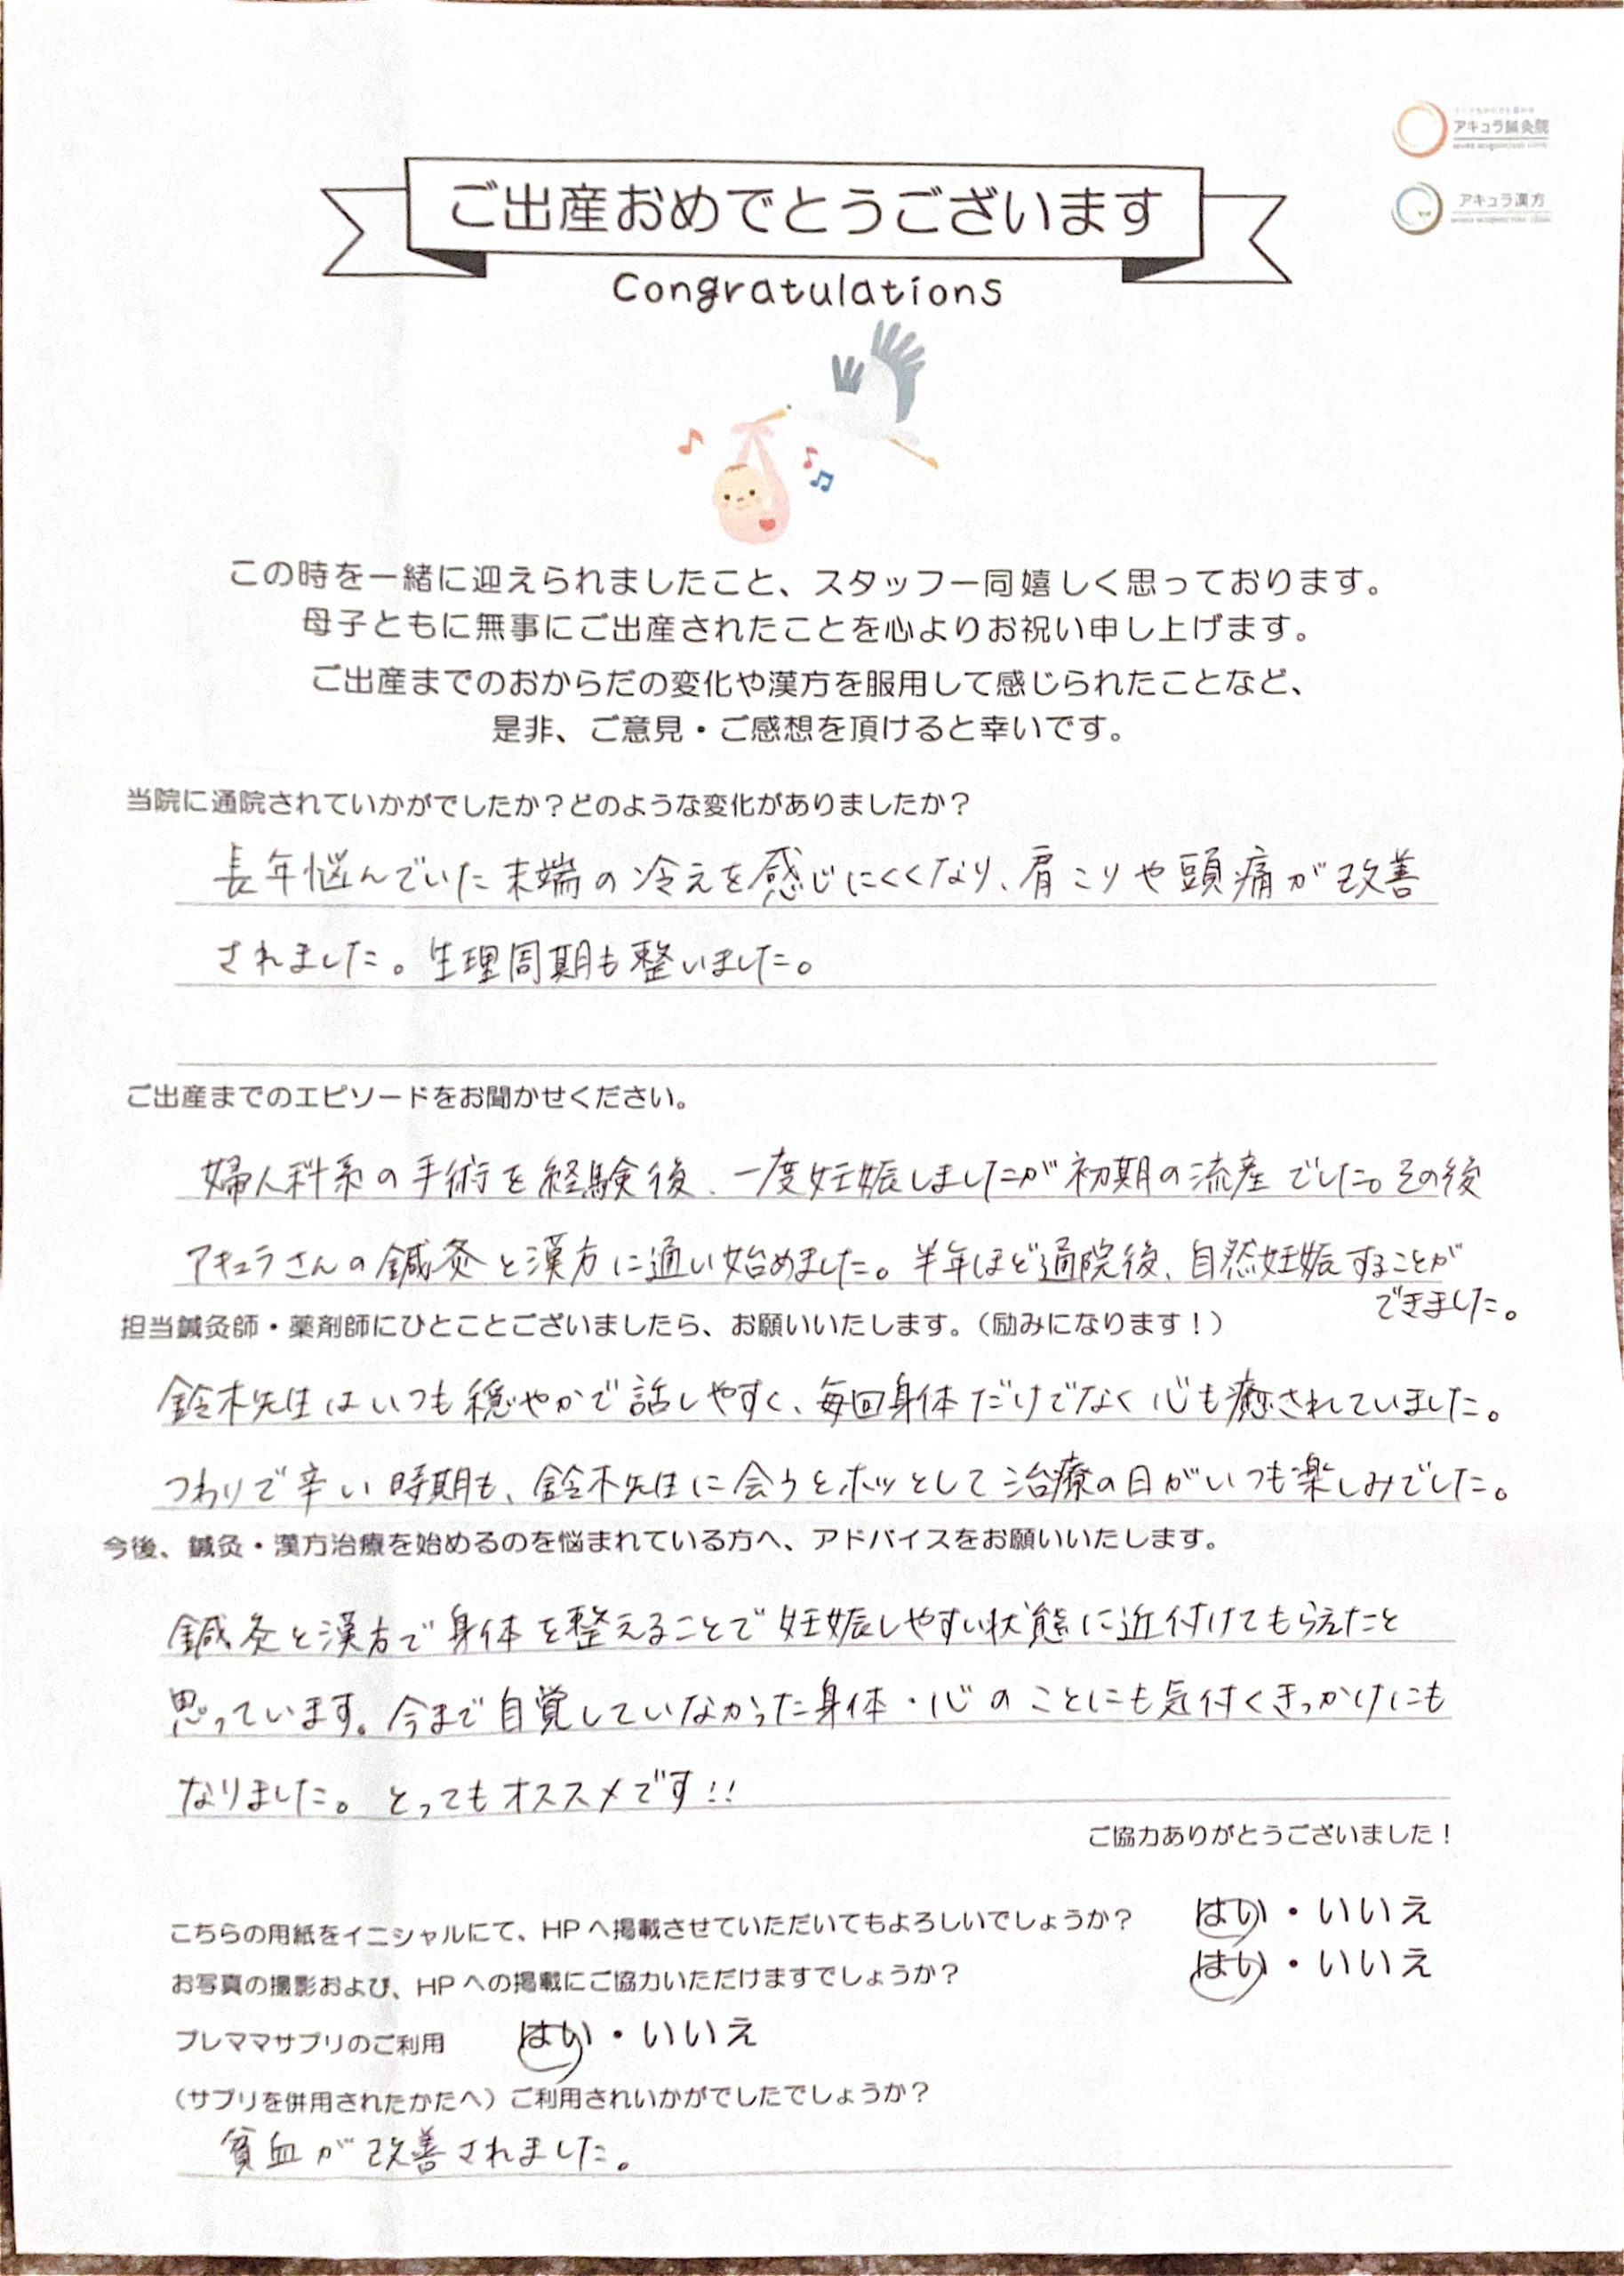 アキュラ鍼灸院
アキュラ漢方
ご出産おめでとうございます
Congratulations
この時を一緒に迎えられましたこと、スタッフ一同嬉しく思っております。
母子ともに無事にご出産されたことを心よりお祝い申し上げます。
ご出産までのおからだの変化や漢方を服用して感じられたことなど、
是非、ご意見・ご感想を頂けると幸いです。
当院に通院されていかがでしたか？どのような変化がありましたか？
長年悩んでいた末端の冷えを感じにくくなり、肩こりや頭痛が改善
されました。生理周期も整いました。
ご出産までのエピソードをお聞かせください。
婦人科系の手術を経験後、一度妊娠しましたが初期の流産でした。その後
アキュラさんの鍼灸と漢方に通い始めました。半年ほど通院後、自然妊娠することが
できました。
担当鍼灸師・薬剤師にひとことございましたら、お願いいたします。（励みになります！）
鈴木先生はいつも穏やかで話しやすく、毎回身体だけでなく心も癒されていました。
つわりで辛い時期も、鈴木先生に会うとホッとして治療の日がいつも楽しみでした。
今後、鍼灸・漢方治療を始めるのを悩まれている方へ、アドバイスをお願いいたします。
鍼灸と漢方で身体を整えることで妊娠しやすい状態に近付けてもらえたと
思っています。今まで自覚していなかった身体・心のことにも気付くきっかけにも
なりました。とってもオススメです!!
ご協力ありがとうございました！
こちらの用紙をイニシャルにて、HPへ掲載させていただいてもよろしいでしょうか？ はい・いいえ
お写真の撮影および、HPへの掲載にご協力いただけますでしょうか？ はい・いいえ
プレママサプリのご利用 はい・いいえ
（サプリを併用されたかたへ）ご利用されいかがでしたでしょうか？
貧血が改善されました。